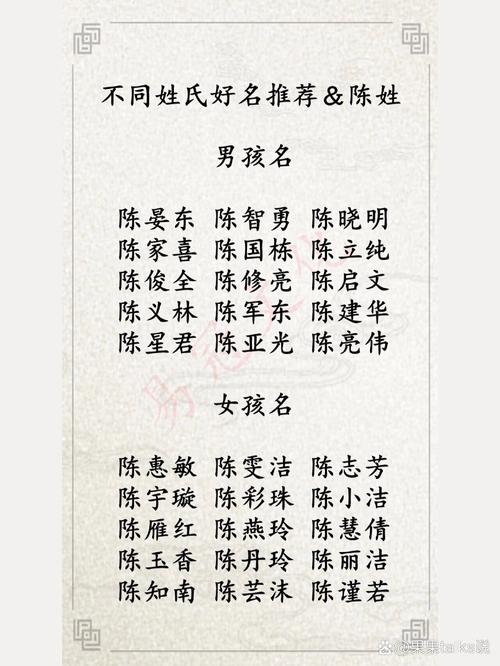 不同姓氏好名推荐＆陈姓
男孩名
陈晏东 陈智勇 陈晓明
陈家喜 陈国栋 陈立纯
陈俊全 陈修亮 陈启文
陈义林 陈军东 陈建华
陈星君 陈亚光 陈亮伟
女孩名
陈惠敏 陈雯洁 陈志芳
陈宇璇 陈彩珠 陈小洁
陈雁红 陈燕玲 陈慧倩
陈玉香 陈丹玲 陈丽洁
陈知南 陈芸沫 陈谨若
@果果talks说